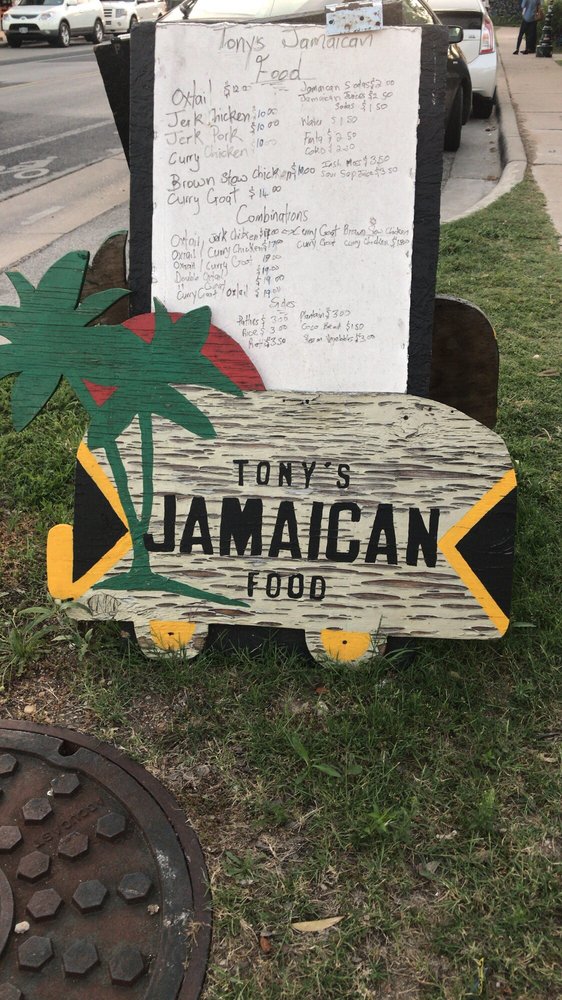 Tonys Jamaican
Food
Oxtail $12.00
Jerk Chicken $10.00
Jerk Pork $10.00
Curry Chicken $10.00
Brown Stew Chicken $10.00
Curry Goat $14.00
Jamaican Sodas $2.00
Jamaican Juices $2.50
Sodas $1.50
Water $1.50
Fanta $2.50
Coko $2.20
Irish Moss $3.50
Sour Sop Juice $3.50
Combinations
Oxtail/ Jerk Chicken
Oxtail/ Curry Chicken
Oxtail/ Curry Goat
Double Oxtail $19.00
Curry Goat/ Oxtail $19.00
Curry Goat Brown Stew Chicken
Curry Goat Curry Chicken
Sides
Patties $3.50
Rice $3.00
Roti $3.50
Plantain $3.00
Coco Bread $1.50
Vegetables $3.00
TONY'S
JAMAICAN
FOOD